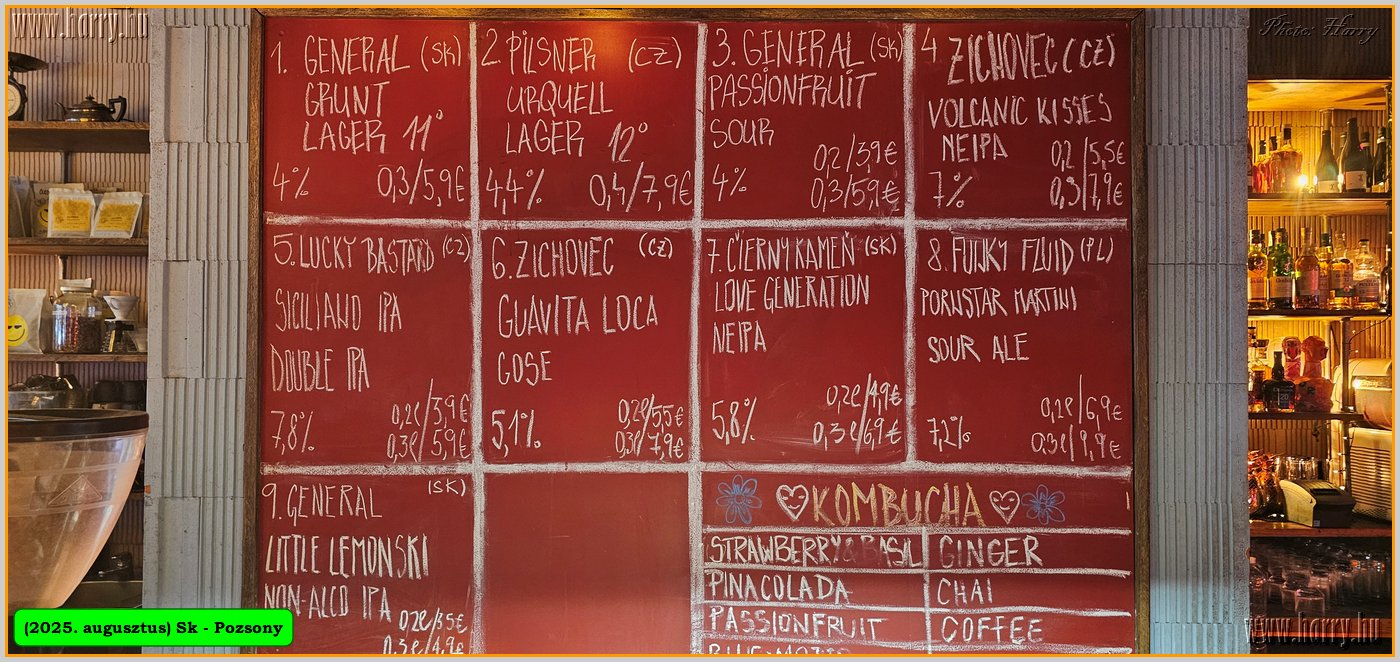 www.harry.hu
Photo: Harry
1. GENERAL (SK)
GRUNT
LAGER 11°
4% 0,3/5,9€
2. PILSNER (CZ)
URQUELL
LAGER 12°
4,4% 0,4/7,9€
3. GENERAL (SK)
PASSIONFRUIT
SOUR
0,2/3,9€
4% 0,3/5,9€
4. ZICHOVEC (CZ)
VOLCANIC KISSES
NEIPA 0,2/5,5€
7% 0,3/7,9€
5. LUCKY BASTARD (CZ)
SICILIANO IPA
DOUBLE IPA
0,2ℓ/3,9€
7,8% 0,3ℓ/5,9€
6. ZICHOVEC (CZ)
GUAVITA LOCA
GOSE
0,2ℓ/5,5€
5,1% 0,3ℓ/7,9€
7. ČIERNY KAMEŇ (SK)
LOVE GENERATION
NEIPA
0,2ℓ/4,9€
5,8% 0,3ℓ/6,9€
8. FUNKY FLUID (PL)
PORNSTAR MARTINI
SOUR ALE
0,2ℓ/6,9€
7,2% 0,3ℓ/9,9€
9. GENERAL (SK)
LITTLE LEMONSKI
NON-ALCO IPA
0,2ℓ/3,5€
0,3ℓ/4,9€
KOMBUCHA
STRAWBERRY & BASIL GINGER
PINACOLADA CHAI
PASSIONFRUIT COFFEE
(2025. augusztus) Sk - Pozsony
www.harry.hu